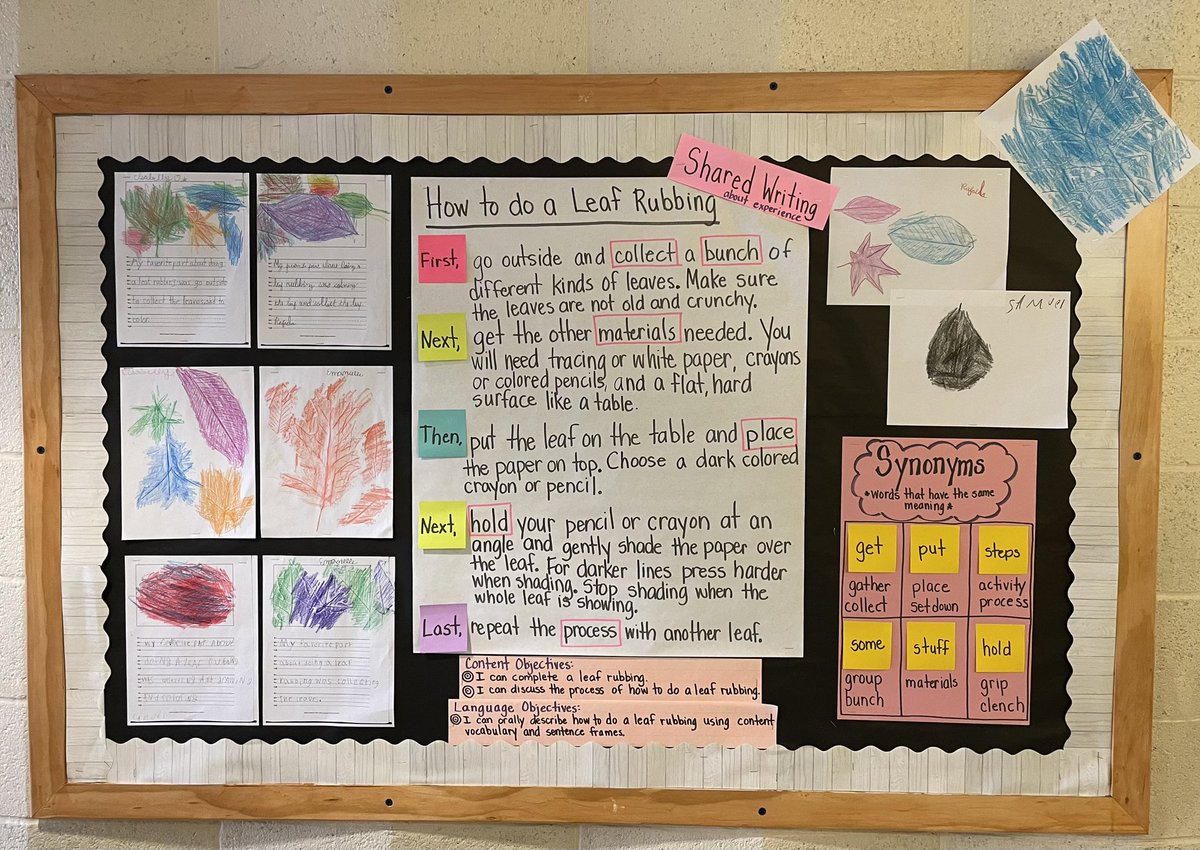 Isabelly O.
My favorite part about doing
a leaf rubbing was go outside
to collect the leaves and to
color.
Rafael
emanuelle
Emanuelle
My favorite part
about doing a leaf
rubbing was collecting
the leaves.
How to do a Leaf Rubbing
Shared Writing
about experience
First, go outside and collect a bunch of
different kinds of leaves. Make sure
the leaves are not old and crunchy.
Next, get the other materials needed. You
will need tracing or white paper, crayons
or colored pencils, and a flat, hard
surface like a table.
Then, put the leaf on the table and place
the paper on top. Choose a dark colored
crayon or pencil.
Next, hold your pencil or crayon at an
angle and gently shade the paper over
the leaf. For darker lines press harder
when shading. Stop shading when the
whole leaf is showing.
Last, repeat the process with another leaf.
Content Objectives:
I can complete a leaf rubbing.
I can discuss the process of how to do a leaf rubbing.
Language Objectives:
I can orally describe how to do a leaf rubbing using content
vocabulary and sentence frames.
Rafael
SAMUEl
Synonyms
*words that have the same
meaning*
get put steps
gather place activity
collect set down process
some stuff hold
group materials grip
bunch clench